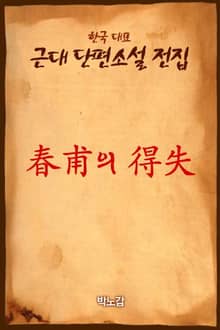 한국 대표
근대 단편소설 전집
春甫의 得失
박노갑